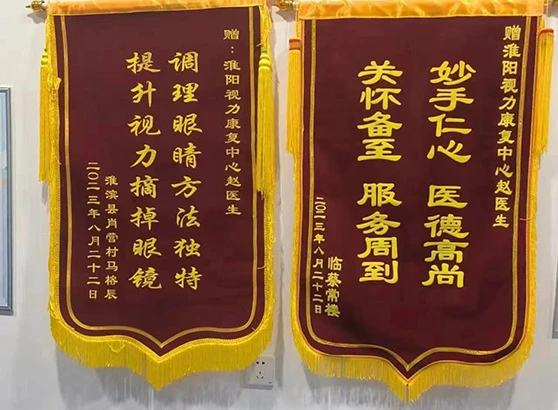 赠：淮阳视力康复中心赵医生
调理眼睛方法独特
提升视力摘掉眼镜
淮滨县肖营村马榕辰
二〇二三年八月二十二日
赠淮阳视力康复中心赵医生
妙手仁心 医德高尚
关怀备至 服务周到
临蔡常楼
二〇二三年八月二十二日